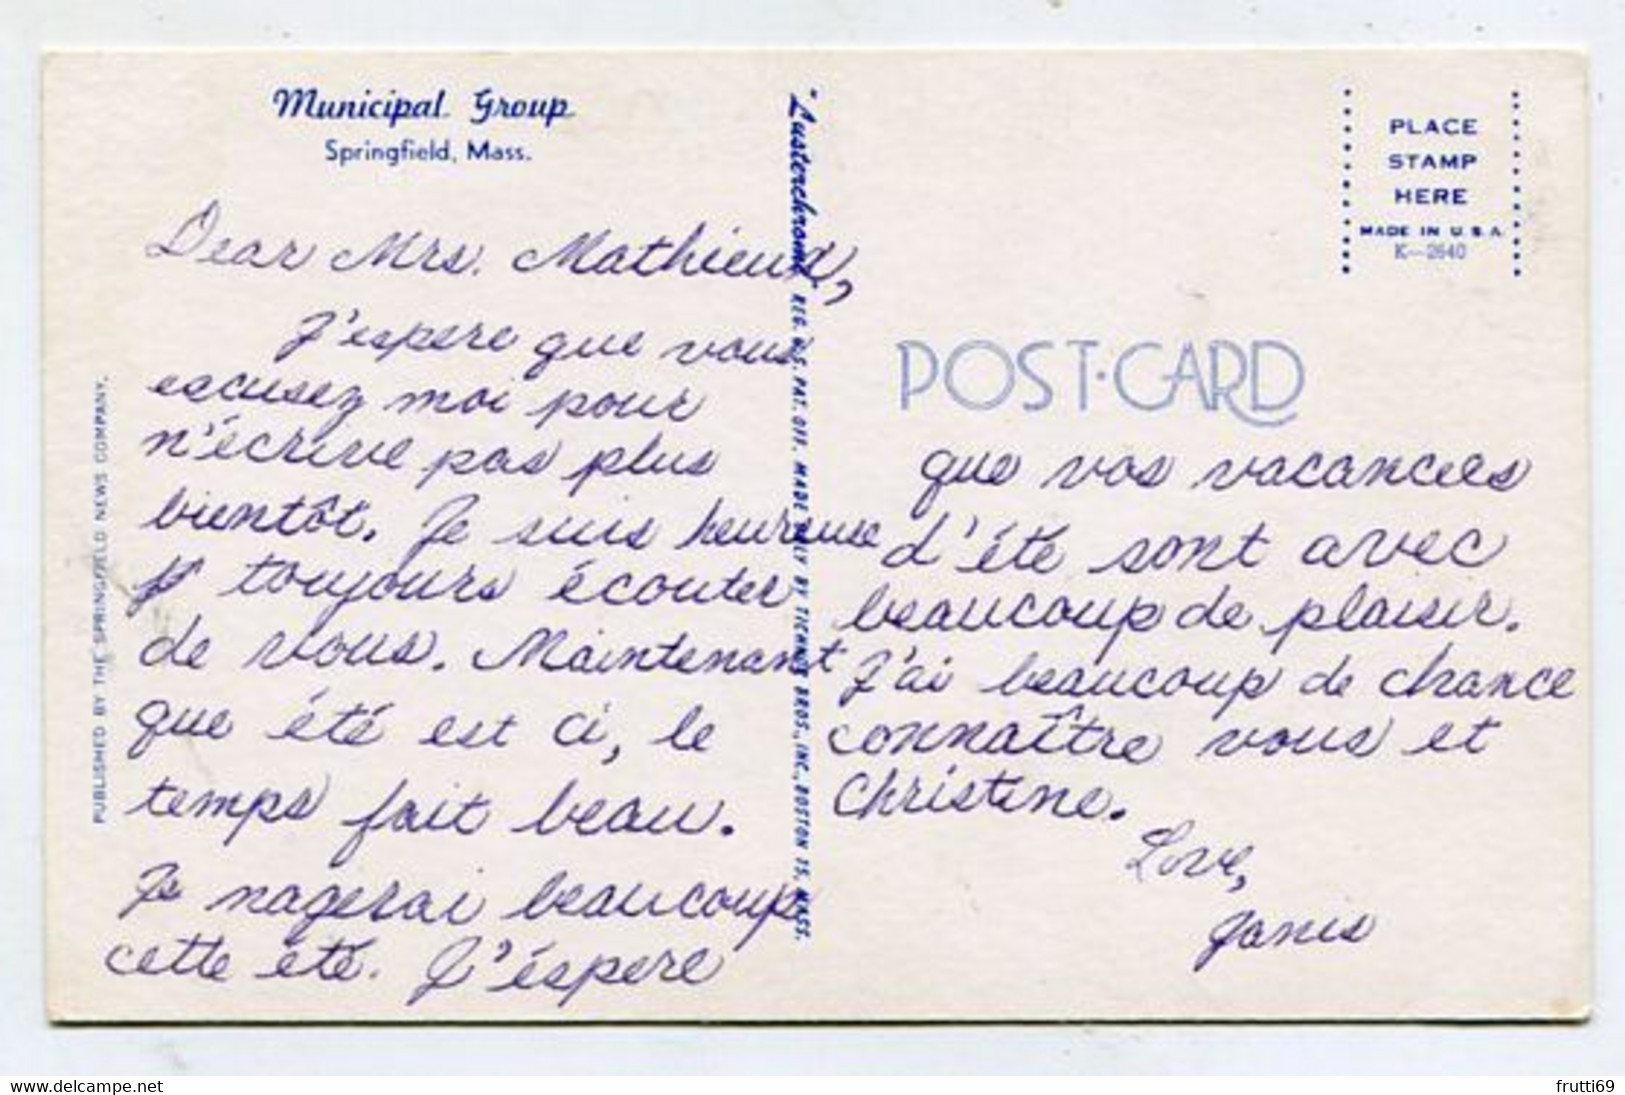 Municipal Group
Springfield, Mass.
Dear Mrs. Mathieux,
J'espere que vous
escusez moi pour
n'écrive pas plus
bientôt. Je suis heureuse
toujours écouter
de vous. Maintenant
que été est ci, le
temps fait beau.
Je nagerai beaucoup
cette été. J'éspere
PUBLISHED BY THE SPRINGFIELD NEWS COMPANY.
"Lusterchrome" REG. U.S. PAT. OFF. MADE ONLY BY TICHNOR BROS., INC., BOSTON 15, MASS.
PLACE
STAMP
HERE
MADE IN U.S.A
K-2640
POST-CARD
que vos vacancees
d'été sont avec
beaucoup de plaisir.
J'ai beaucoup de chance
connaître vous et
Christine.
Love,
Janis
www.delcampe.net
frutti69